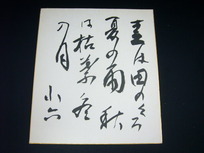 春は田の
夏の雨 秋
は枯葉 冬
の月
小六